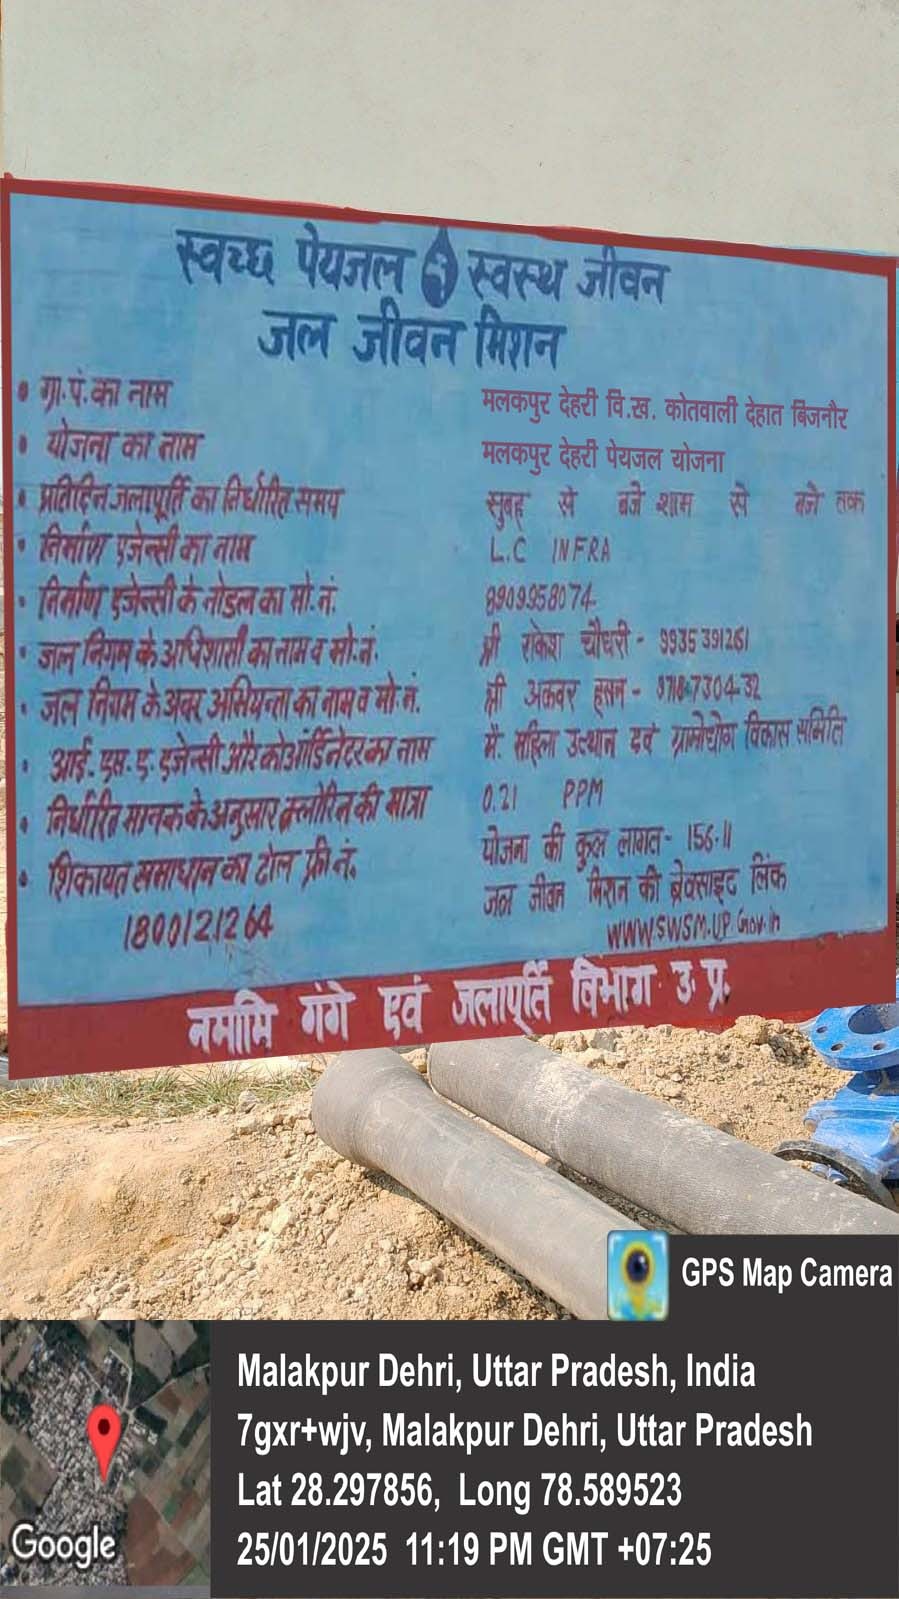 स्वच्छ पेयजल स्वस्थ जीवन
जल जीवन मिशन
• ग्रा.पं.का नाम मलकपुर देहरी वि.ख. कोतवाली देहात बिजनौर
• योजना का नाम मलकपुर देहरी पेयजल योजना
• प्रतिदिन जलापूर्ति का निर्धारित समय सुबह से बजे शाम से बजे तक
• निर्माण एजेन्सी का नाम L.C INFRA
• निर्माण एजेन्सी के नोडल का मो.नं. 8909958074
• जल निगम के अधिशासी का नाम व मो.नं. श्री राकेश चौधरी - 9935391261
• जल निगम के अवर अभियन्ता का नाम व मो.नं. श्री अकबर हसन - 8718730432
• आई. एस. ए. एजेन्सी और कोऑर्डिनेटर का नाम मै. महिला उत्थान एवं ग्रामोद्योग विकास समिति
• निर्धारित मानक के अनुसार क्लोरिन की मात्रा 0.21 PPM
• शिकायत समाधान का टोल फ्री नं. योजना की कुल लागत - 156.11
1800121264 जल जीवन मिशन की वेबसाइट लिंक
WWW.SWSM.UP.Gov.in
नमामि गंगे एवं जलापूर्ति विभाग उ. प्र.
GPS Map Camera
Malakpur Dehri, Uttar Pradesh, India
7gxr+wjv, Malakpur Dehri, Uttar Pradesh
Lat 28.297856, Long 78.589523
25/01/2025 11:19 PM GMT +07:25
Google